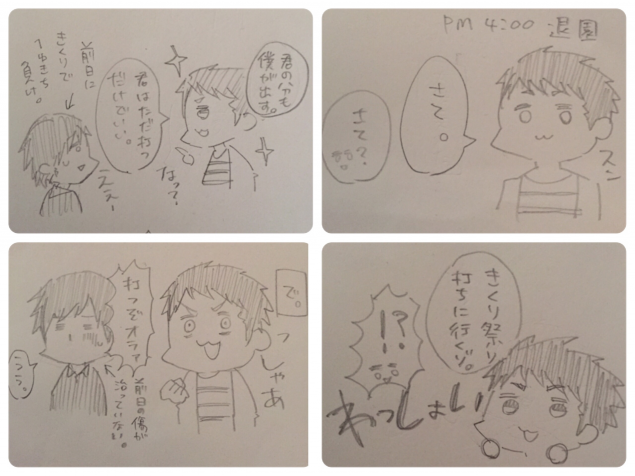 PM 4:00 退園
さて。
さて?
スン
きくり祭り
打ちに行くゾ。
!?
わっしょい
君の分も
僕が出す。
君はただ打つ
だけでいい。
なっ?
前日に
きくりで
ゆきち
負け。
ええー
で。
っしゃあ
打つぞオラァ
前日の傷が
治っていない。
ううっ。